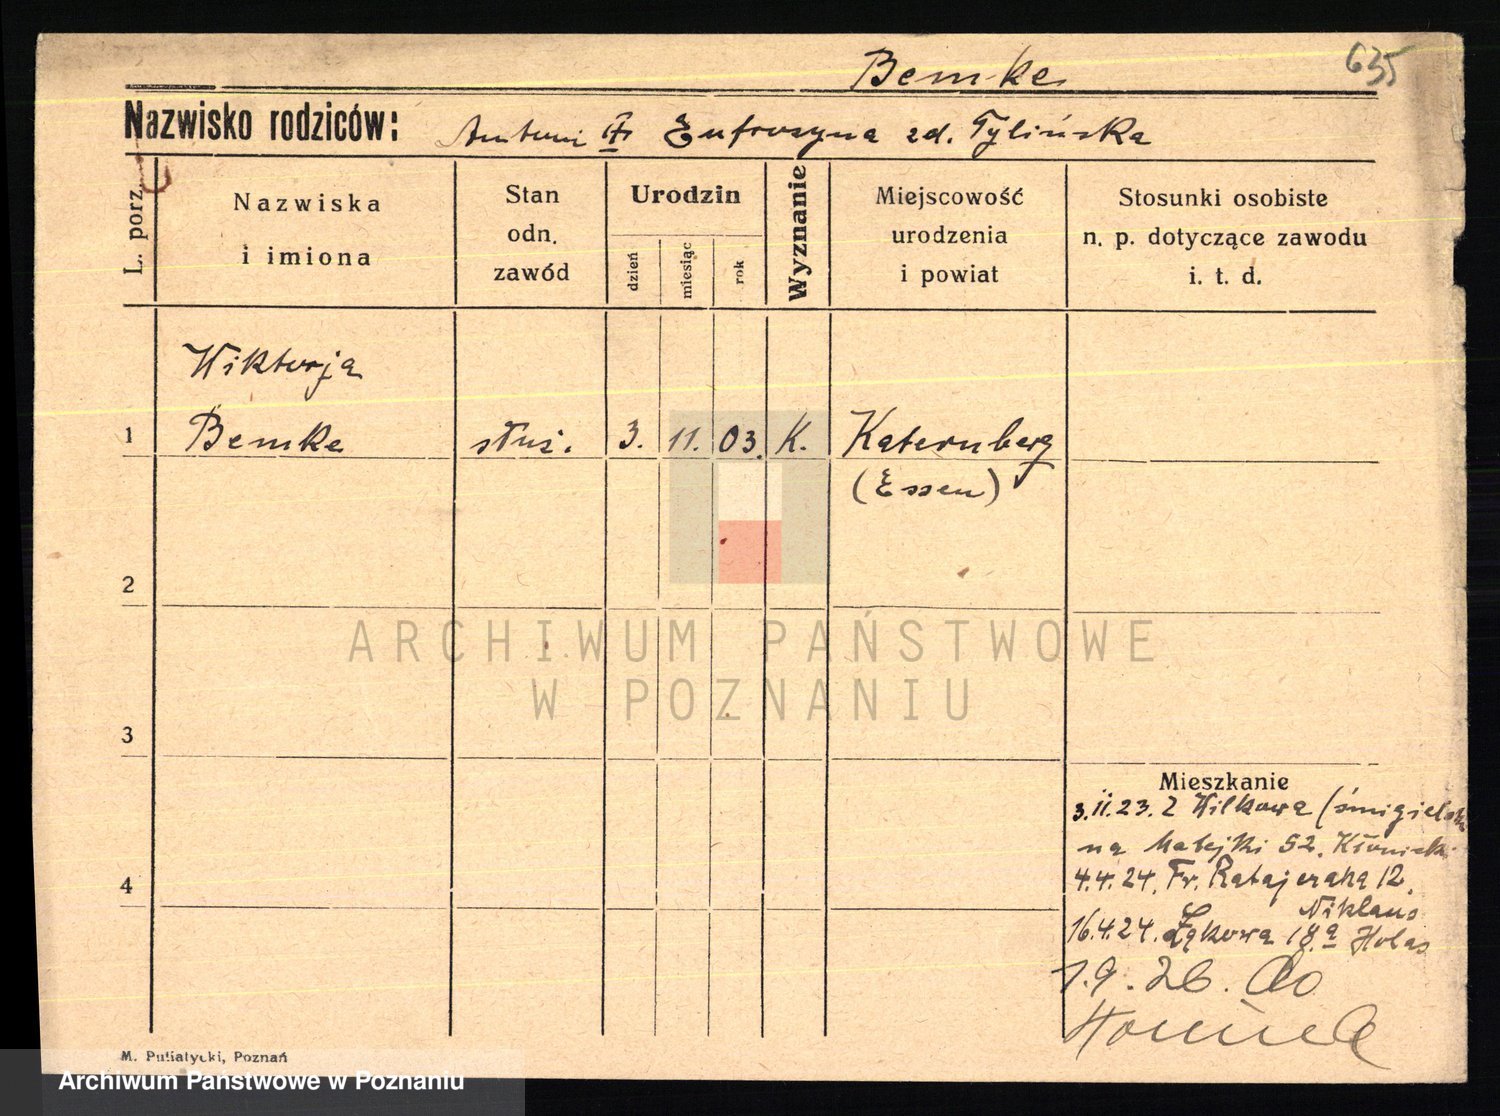 Bemke
635
Nazwisko rodziców:
Antoni Fr Eufrozyna zd. Tylińska
L. porz.
Nazwiska
i imiona
Stan
odn.
zawód
Urodzin
dzień
miesiąc
rok
Wyznanie
Miejscowość
urodzenia
i powiat
Stosunki osobiste
n. p. dotyczące zawodu
i. t. d.
Wiktorja
1 Bemke służ. 3. 11. 03. K. Katernberg
(Essen)
2
ARCHIWUM PAŃSTWOWE
W POZNANIU
3
Mieszkanie
3.11.23. Z Wilkowa (śmigielsk
na Matejki 52.
4
4.4.24. Fr. Ratajczaka 12.
Niklaus
16.4.24. Łąkowa 18.a Holas
1.9.26. do
M. Putiatycki, Poznań
Archiwum Państwowe w Poznaniu